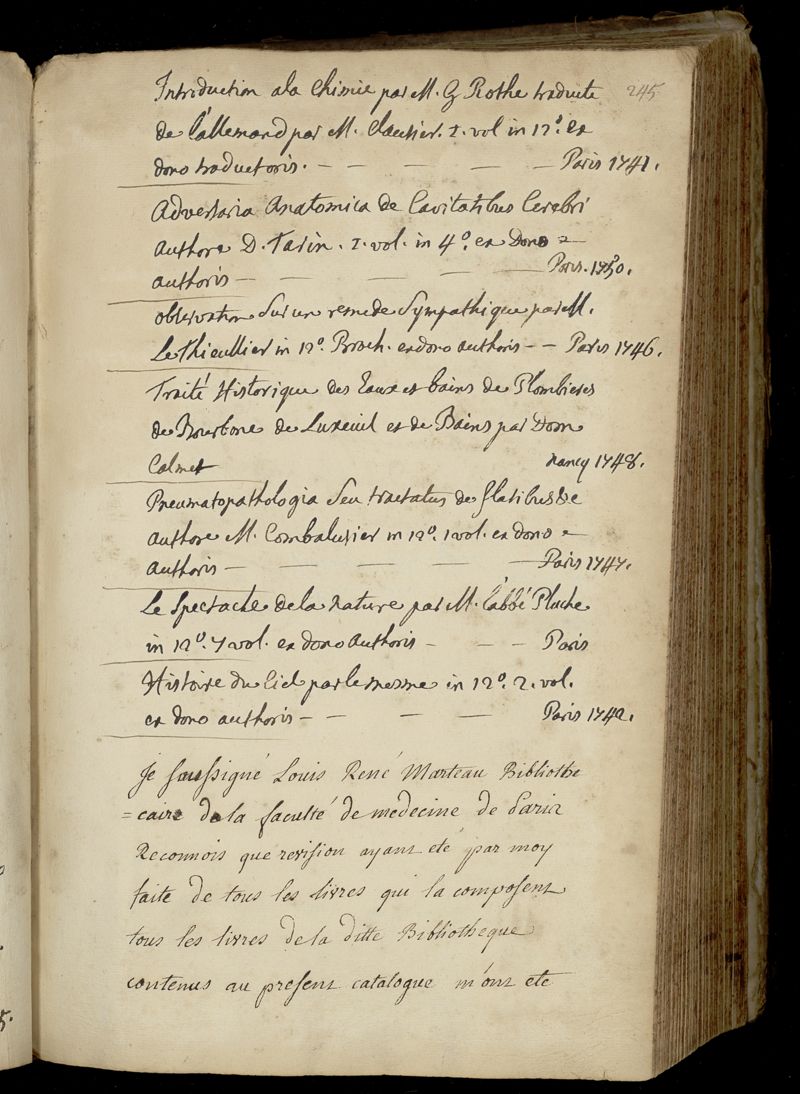 245
Introduction ala Chimie par M. G Rothe traduite
de l'allemand par M. Clausier. 1. vol in 12º. ex
dono traductoris. — — — — — Paris 1741.
Adversaria Anatomica de Cavitatibus Cerebri
Authore D. Tarin. 1. vol. in 4º. ex Dono =
authoris — — — — Paris. 1750.
observation Sur un remede Sympathique par M.
Le Thieullier in 12º. Broch. ex dono authoris - - Paris 1746.
Traité Historique des Eaux et bains de Plombieres
de Bourbone de Luxeuil et de Bains par Dom
Calmet nancy 1748.
Pneumatopathologia Seu tractatus de flatibus &c
authore M. Combalusier in 12º. 1 vol. ex dono =
authoris — — — — — Paris 1747.
Le Spectacle de la nature par M. l'abbé Pluche
in 12º. 7 vol. ex dono authoris - - - Paris
Histoire du Ciel par le mesme in 12º. 2. vol.
ex dono authoris — — — — Paris 1742.
Je soussigné Louis René Marteau Bibliothe
=caire de la faculté de medecine de Paris
Reconnois que revision ayant eté par moy
faite de tous les livres qui la composent
tous les livres de la ditte Bibliotheque
contenus au present catalogue m'ont ete
5.